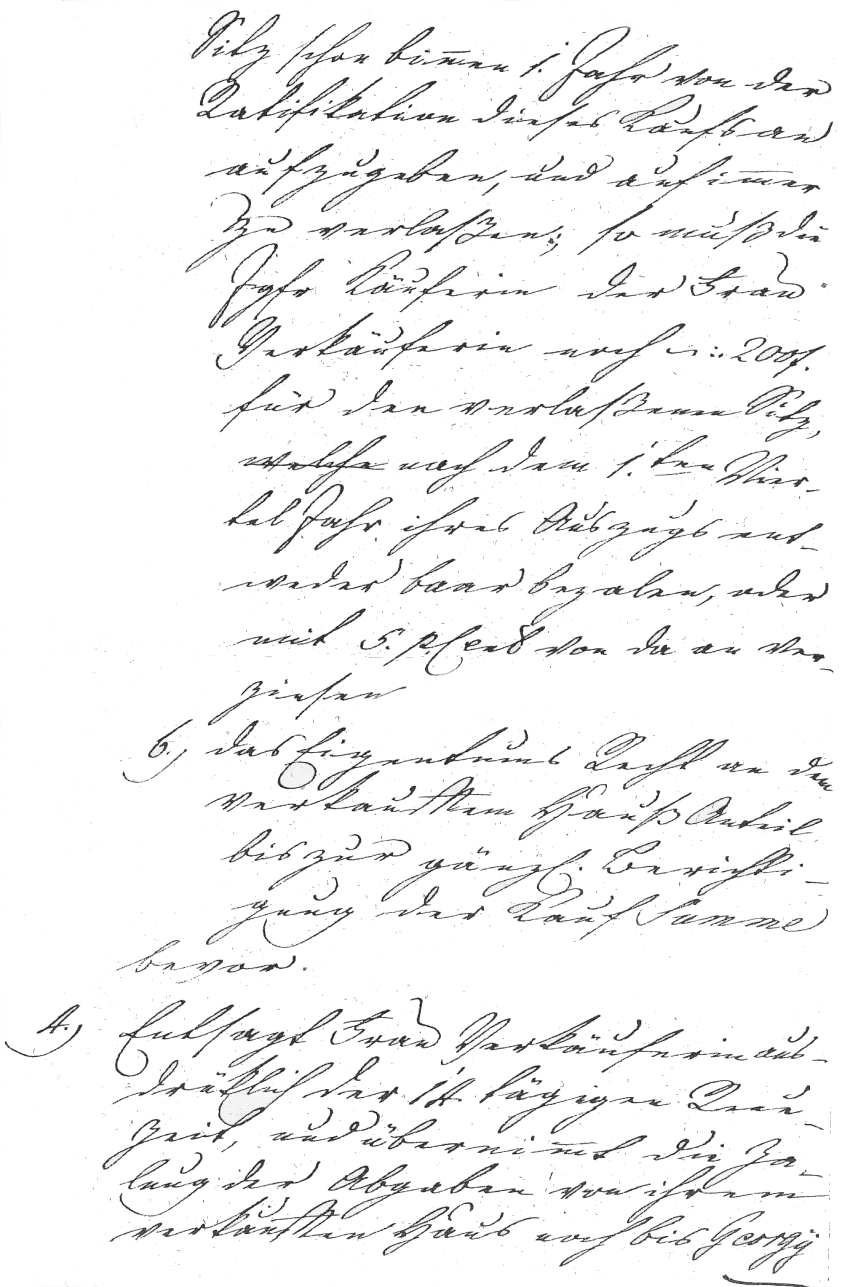 Sitz schon binnen 1. Jahr von der
Ratifikation dieses Kaufs an
aufzugeben, und auf immer
zu verlaßen; so muß die
Jgfr Käuferin der Frau
Verkäuferin noch 200f.
für den verlaßenen Sitz,
welche nach dem 1.ten Vier-
tel Jahr ihres Auszugs ent-
weder baar bezalen, oder
mit 5. p.Cent von da an ver-
zinsen
6.) das Eigentums Recht an dem
verkaufften Hauß Anteil
bis zur gänzl. Berichti-
gung der Kauf Summe
bevor.
4.) Entsagt Frau Verkäuferin aus-
drüklich der 14 tägigen Reu-
zeit, und übernimmt die Za-
lung der Abgaben von ihrem
verkaufften Haus noch bis Georgÿ